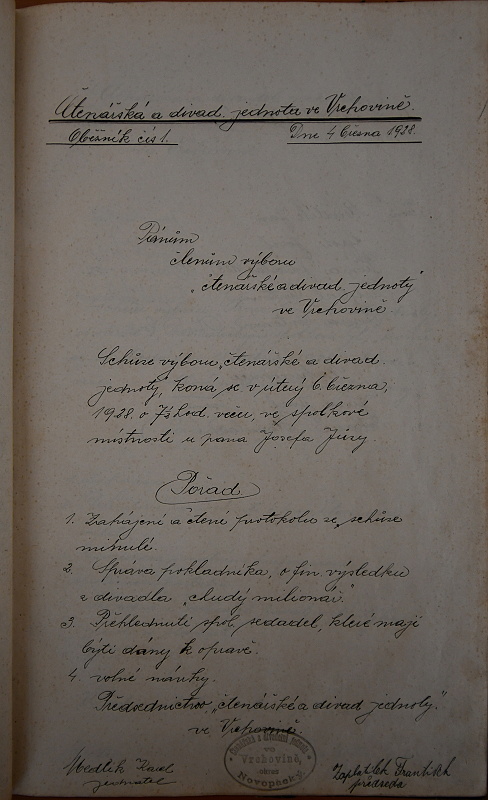 Čtenářská a divad. jednota ve Vrchovině.
Oběžník čís 1.
Dne 4 března 1928.
Pánům
členům výboru
"čtenářské a divad. jednoty"
ve Vrchovině.
Schůze výboru, "čtenářské a divad.
jednoty", koná se v úterý 6. března,
1928. o hod. večer, ve spolkové
místnosti u pana Josefa Jůzy.
Pořad
1. Zahájení a čtené protokolu se schůze
minulé.
2. Správa pokladníka, o fin. výsledku
z divadla "chudý milionář."
3. Přehlédnutí spol. sedadel, které mají
býti dány k opravě.
4. volné návrhy.
Předsednictvo "čtenářské a divad jednoty".
ve Vrchovině.
ve
Vrchovině,
okres
Novopacký
Medlík Karel
jednatel
Zaplatílek František
předseda